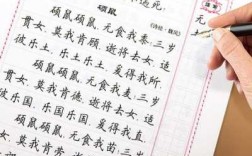 遄死。
硕鼠
(诗经·魏风)
硕鼠硕鼠,无食我黍,三岁
贯女,莫我肯顾,逝将去女,适
彼乐土,乐土乐土,爰得我所,
硕鼠硕鼠,无食我麦,三岁
贯女,莫我肯德,逝将去女,适
彼乐国,乐国乐国,爰得我直,
硕鼠硕鼠,无食我苗,三岁
无
土